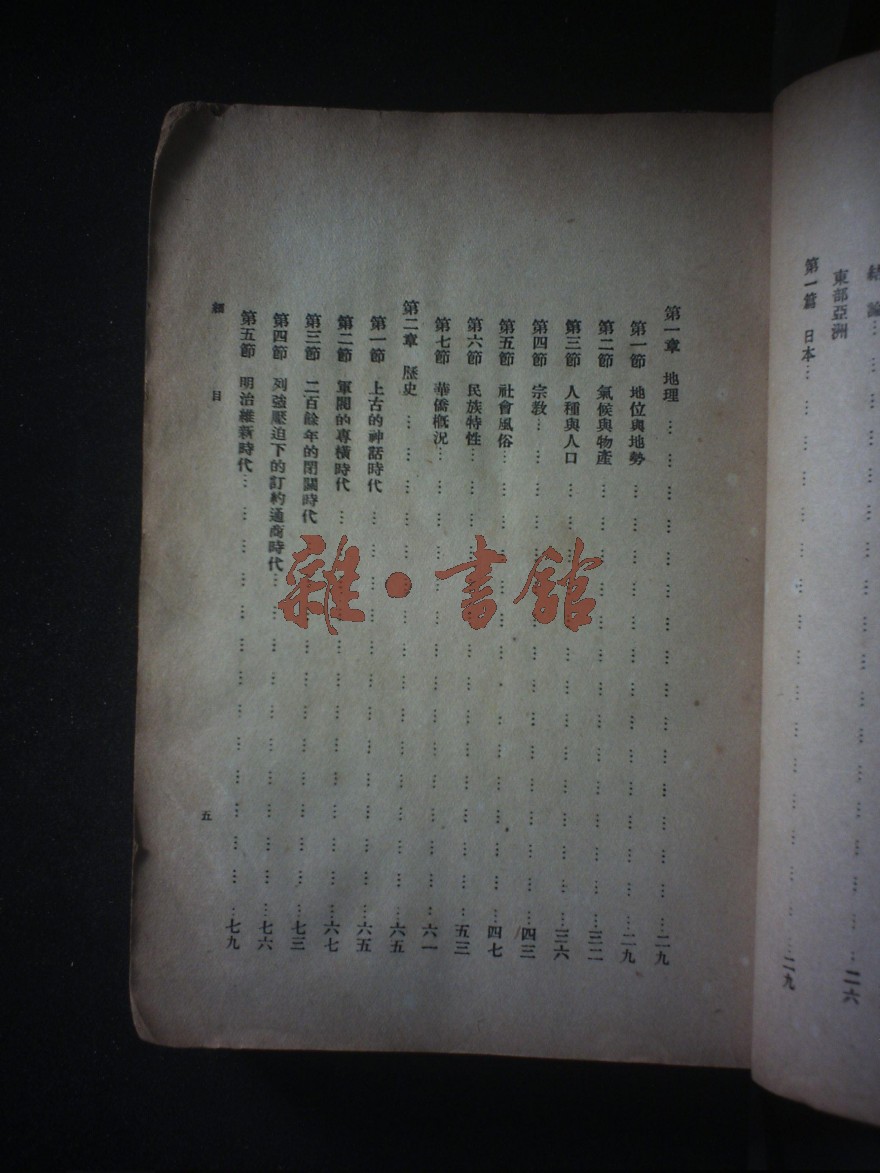 結論… … … … … … … … … …二六
東部亞洲
第一篇 日本… … … … … … … … … … …二九
第一章 地理 … … … … … … … … … … … … … … … …二九
第一節 地位與地勢 … … … … … … … … … … … … … …二九
第二節 氣候與物產 … … … … … … … … … … … … … …三二
第三節 人種與人口 … … … … … … … … … … … … … …三六
第四節 宗教… … … … … … … … … … … … … … … …四三
第五節 社會風俗… … … … … … … … … … … … … … …四七
第六節 民族特性… … … … … … … … … … … … … … …五三
第七節 華僑概況… … … … … … … … … … … … … … …六一
第二章 歷史 … … … … … … … … … … … … … … … …六五
第一節 上古的神話時代 … … … … … … … … … … … … …六五
第二節 軍閥的專橫時代 … … … … … … … … … … … … …六七
第三節 二百餘年的閉關時代 … … … … … … … … … … … …七三
第四節 列強壓迫下的訂約通商時代… … … … … … … … … … …七六
第五節 明治維新時代… … … … … … … … … … … … … …七九
細目
五
雜·書館